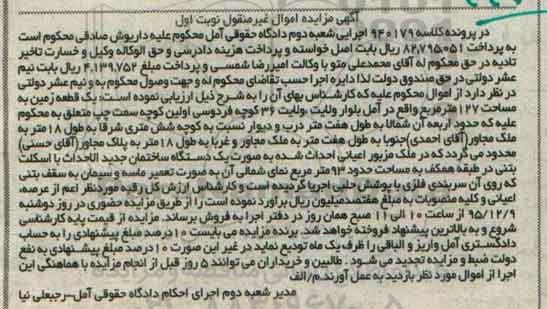 آگهی مزایده اموال غیرمنقول نوبت اول
در پرونده کلاسه ۹۴۰۱۷۹ اجرایی شعبه دوم دادگاه حقوقی آمل محکوم علیه داریوش صادقی محکوم است
به پرداخت ۸۲,۷۹۵۰۵۱ ریال بابت اصل خواسته و پرداخت هزینه دادرسی و حق الوکاله وکیل و خسارت تاخیر
تادیه در حق محکوم له آقای محمدعلی متو با وکالت امیررضا شمسی و پرداخت مبلغ ۴,۱۳۹,۷۵۲ ریال بابت نیم
عشر دولتی در حق صندوق دولت لذا دایره اجرا حسب تقاضای محکوم له و جهت وصول محکوم به و نیم عشر دولتی
در نظر دارد از اموال محکوم علیه که کارشناس بهای آن را به شرح ذیل ارزیابی نموده است: یک قطعه زمین به
مساحت ۱۲۷ مترمربع واقع در آمل بلوار ولایت، ولایت ۳۶ کوچه فردوسی اولین کوچه سمت چپ متعلق به محکوم
علیه که حدود اربعه آن شمالا به طول هفت متر درب و دیوار نسبت به کوچه شش متری شرقا به طول ۱۸ متر به
ملک مجاور (آقای احمدی) جنوبا به طول هفت متر به ملک مجاور و غربا به طول ۱۸ متر به پلاک مجاور (آقای حسنی)
محدود می گردد که در ملک مزبور اعیانی احداث شده به صورت یک دستگاه ساختمان جدید الاحداث با اسکلت
بتنی در طبقه همکف به مساحت حدود ۹۳ متر مربع نمای شمالی آن به صورت تعمیر ماسه و سیمان به سقف بتنی
که روی آن سربندی فلزی با پوشش حلبی اجرا گردیده است و کارشناس ارزش کل رقبه موردنظر اعم از عرصه،
اعیانی و کلیه منصوبات به مبلغ هفتصدمیلیون ریال برآورد نموده است را از طریق مزایده حضوری در روز دوشنبه
۹۵/۱۲/۹ از ساعت ۱۰ الی ۱۱ صبح همان روز در دفتر اجرا به فروش برساند. مزایده از قیمت پایه کارشناسی
شروع و به بالاترین پیشنهاد فروخته خواهد شد. برنده مزایده می بایست ۱۰ درصد مبلغ پیشنهادی را به حساب
دادگستری آمل واریز و الباقی را ظرف یک ماه تودیع نماید در غیر این صورت ۱۰ درصد مبلغ پیشنهادی به نفع
دولت ضبط و مزایده تجدید می شود. طالبین و خریداران می توانند ۵ روز قبل از انجام مزایده با هماهنگی این
اجرا از اموال مورد نظر بازدید به عمل آورند.م/الف
مدیر شعبه دوم اجرای احکام دادگاه حقوقی آمل-رجبعلی نیا